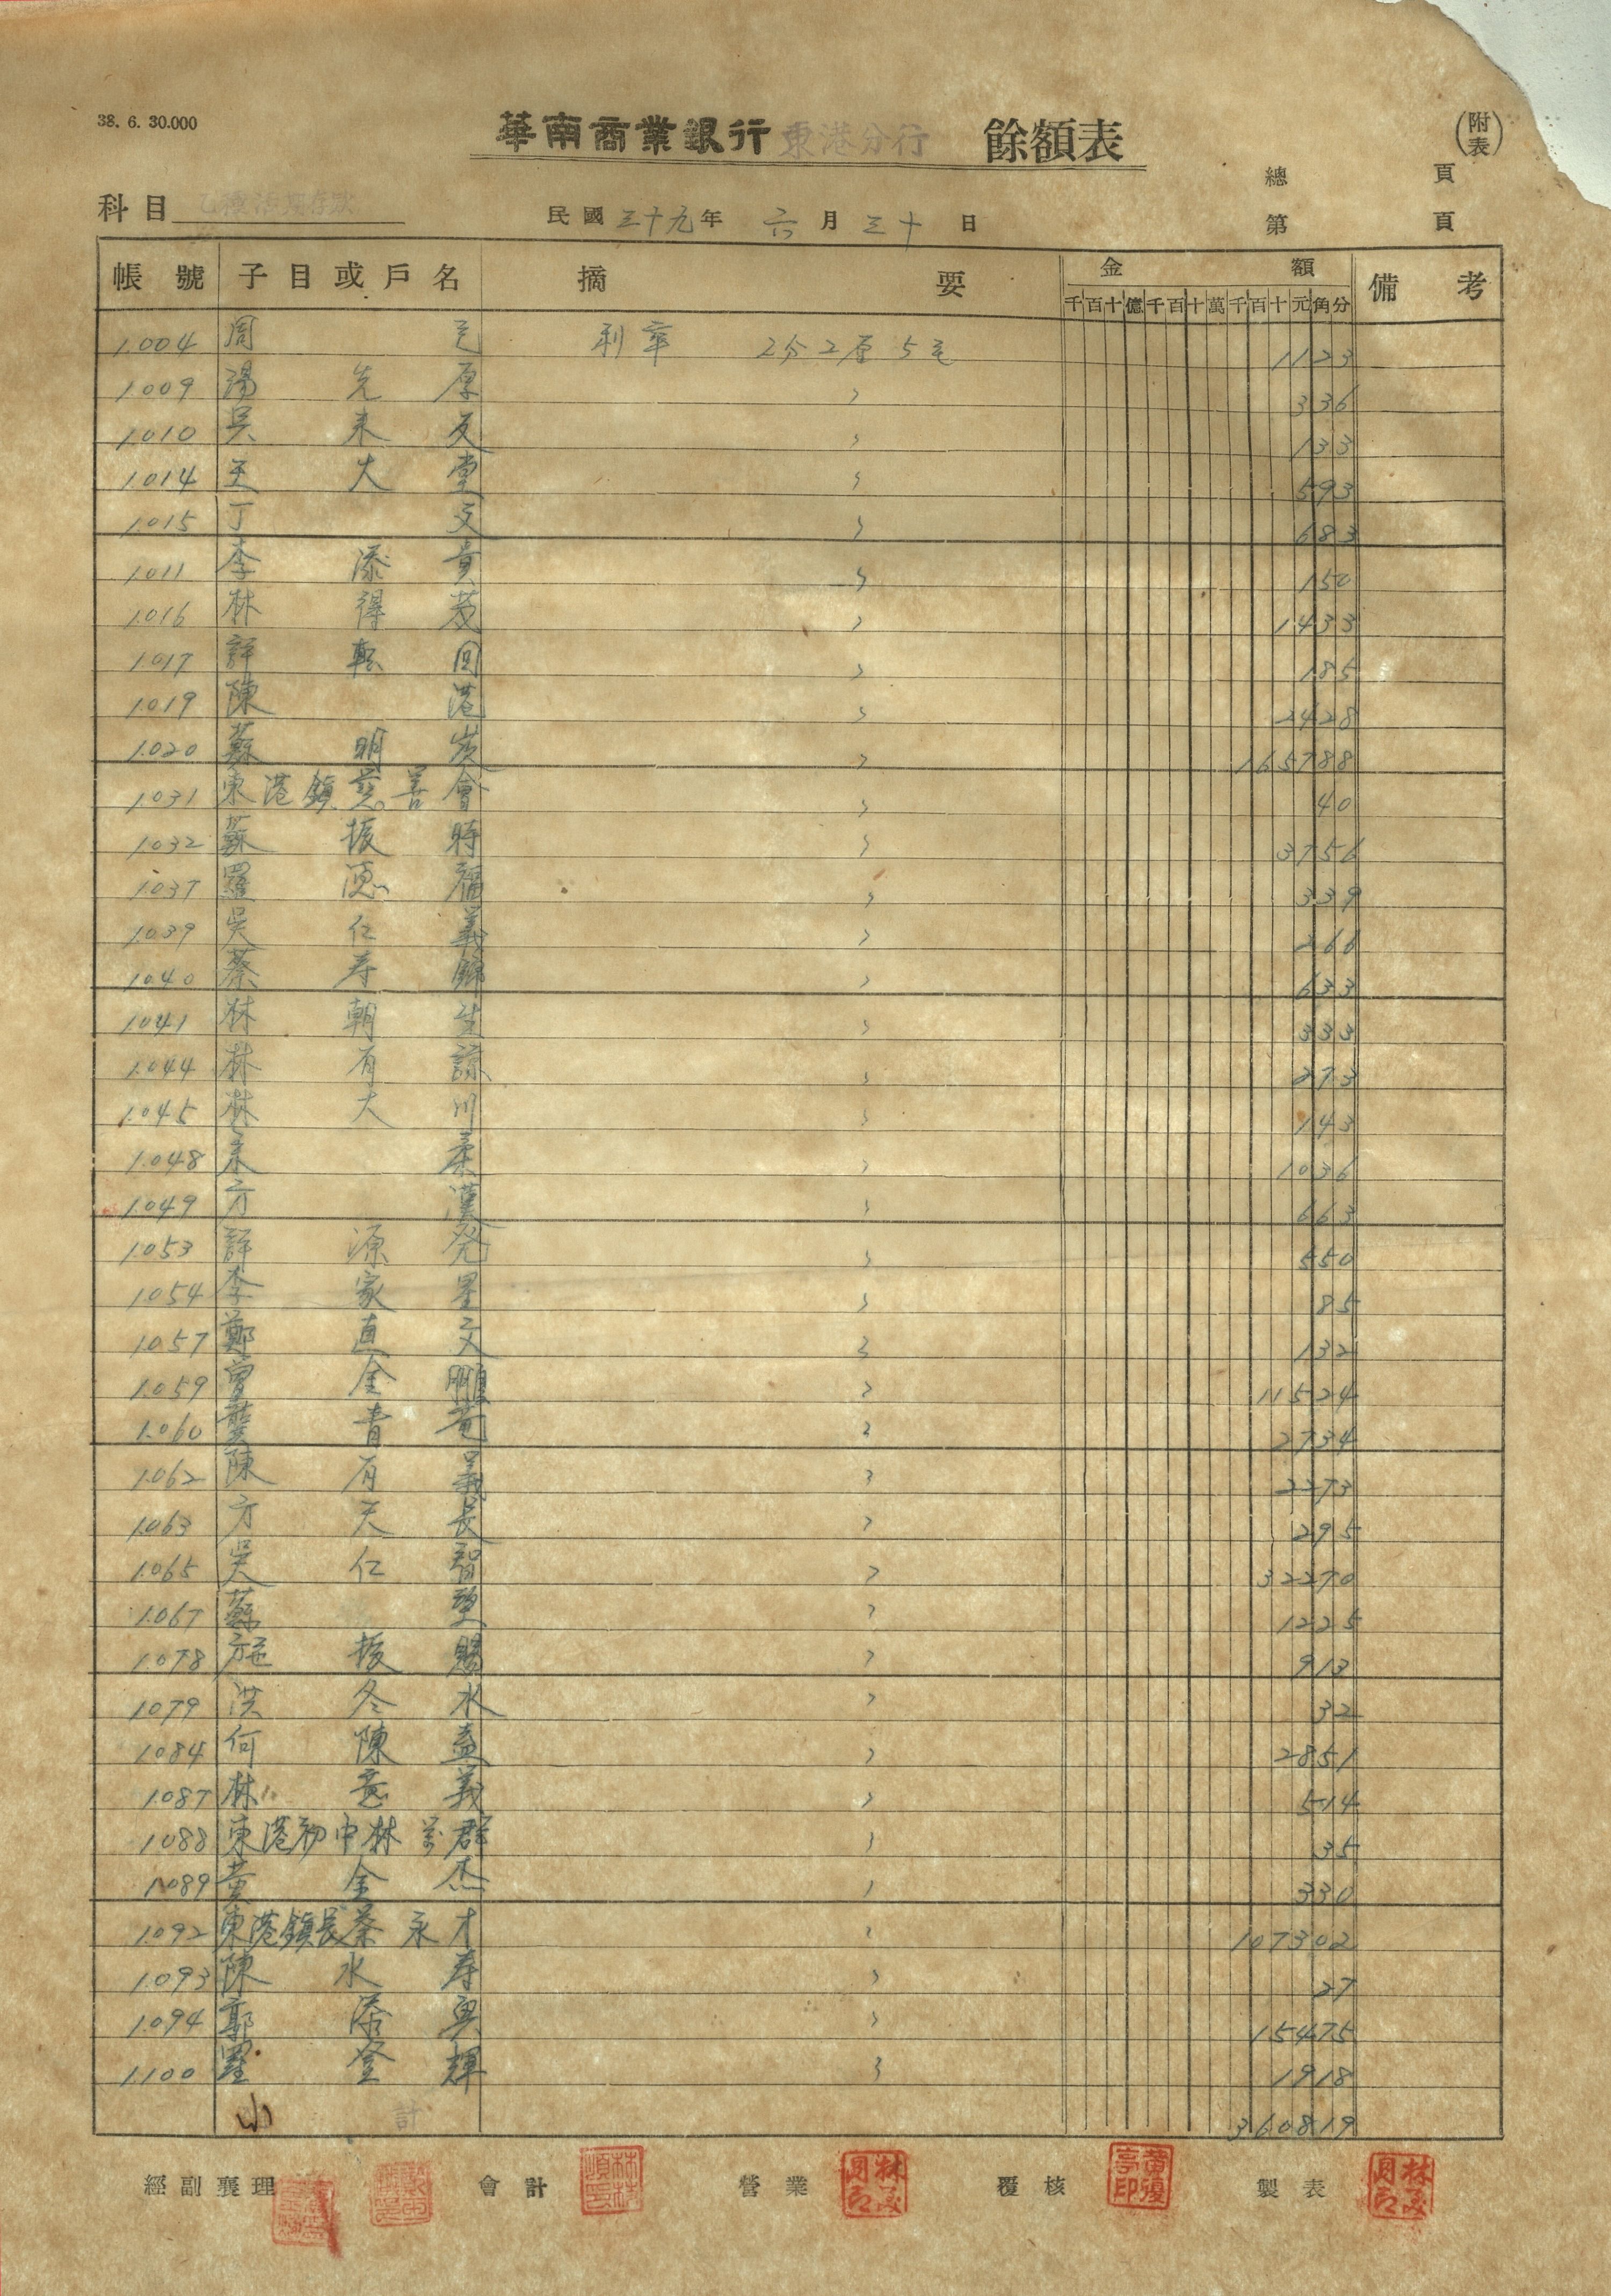 38. 6. 30.000
華南商業銀行 東港分行 餘額表
(附表)
總 頁
科目 乙種活期存款
民國 三十九 年 六 月 三十 日
第 頁
帳號 子目或戶名 摘要 金額 備考
千百十億千百十萬千百十元角分
1.004 周 利率 2分2厘5毛 1123
1.009 湯先厚 〃 336
1.010 吳來友 〃 133
1.014 王大堂 〃 593
1.015 丁文 〃 683
1.011 李添貴 〃 150
1.016 林得茂 〃 1433
1.017 許転回 〃 185
1.019 陳港 〃 2428
1.020 蘇明炭 〃 165788
1.031 東港鎮慈善會 〃 40
1.032 蘇振時 〃 3756
1.037 羅德福 〃 339
1.039 吳仁義 〃 266
1.040 蔡寿錦 〃 633
1.041 林朝 〃 333
1.044 林有諒 〃 273
1.045 林大川 〃 143
1.048 〃 1036
1.049 方漢 〃 663
1.053 許源発 〃 550
1.054 李家星 〃 85
1.057 鄭直文 〃 132
1.059 曾金鵬 〃 11524
1.060 龔青 〃 2734
1.062 陳有義 〃 2273
1.063 方天長 〃 295
1.065 吳仁智 〃 32270
1.067 蘇 〃 1225
1.078 施振賜 〃 913
1.079 洪冬水 〃 32
1.084 何陳益 〃 2851
1.087 林意義 〃 514
1.088 東港初中林 群 〃 35
1.089 黃金杰 〃 330
1.092 東港鎮長蔡永才 〃 107302
1.093 陳水寿 〃 27
1.094 郭添興 〃 15475
1.100 羅金輝 〃 1918
小計 360819
經副襄理 會計 營業 覆核 製表